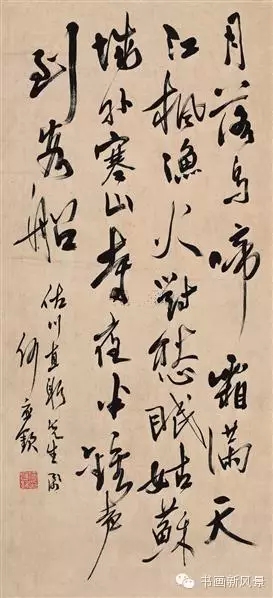 月落乌啼霜满天
江枫渔火对愁眠姑苏
城外寒山寺夜半钟声
到客船
佐川直躬先生属
何应钦
书画新风景